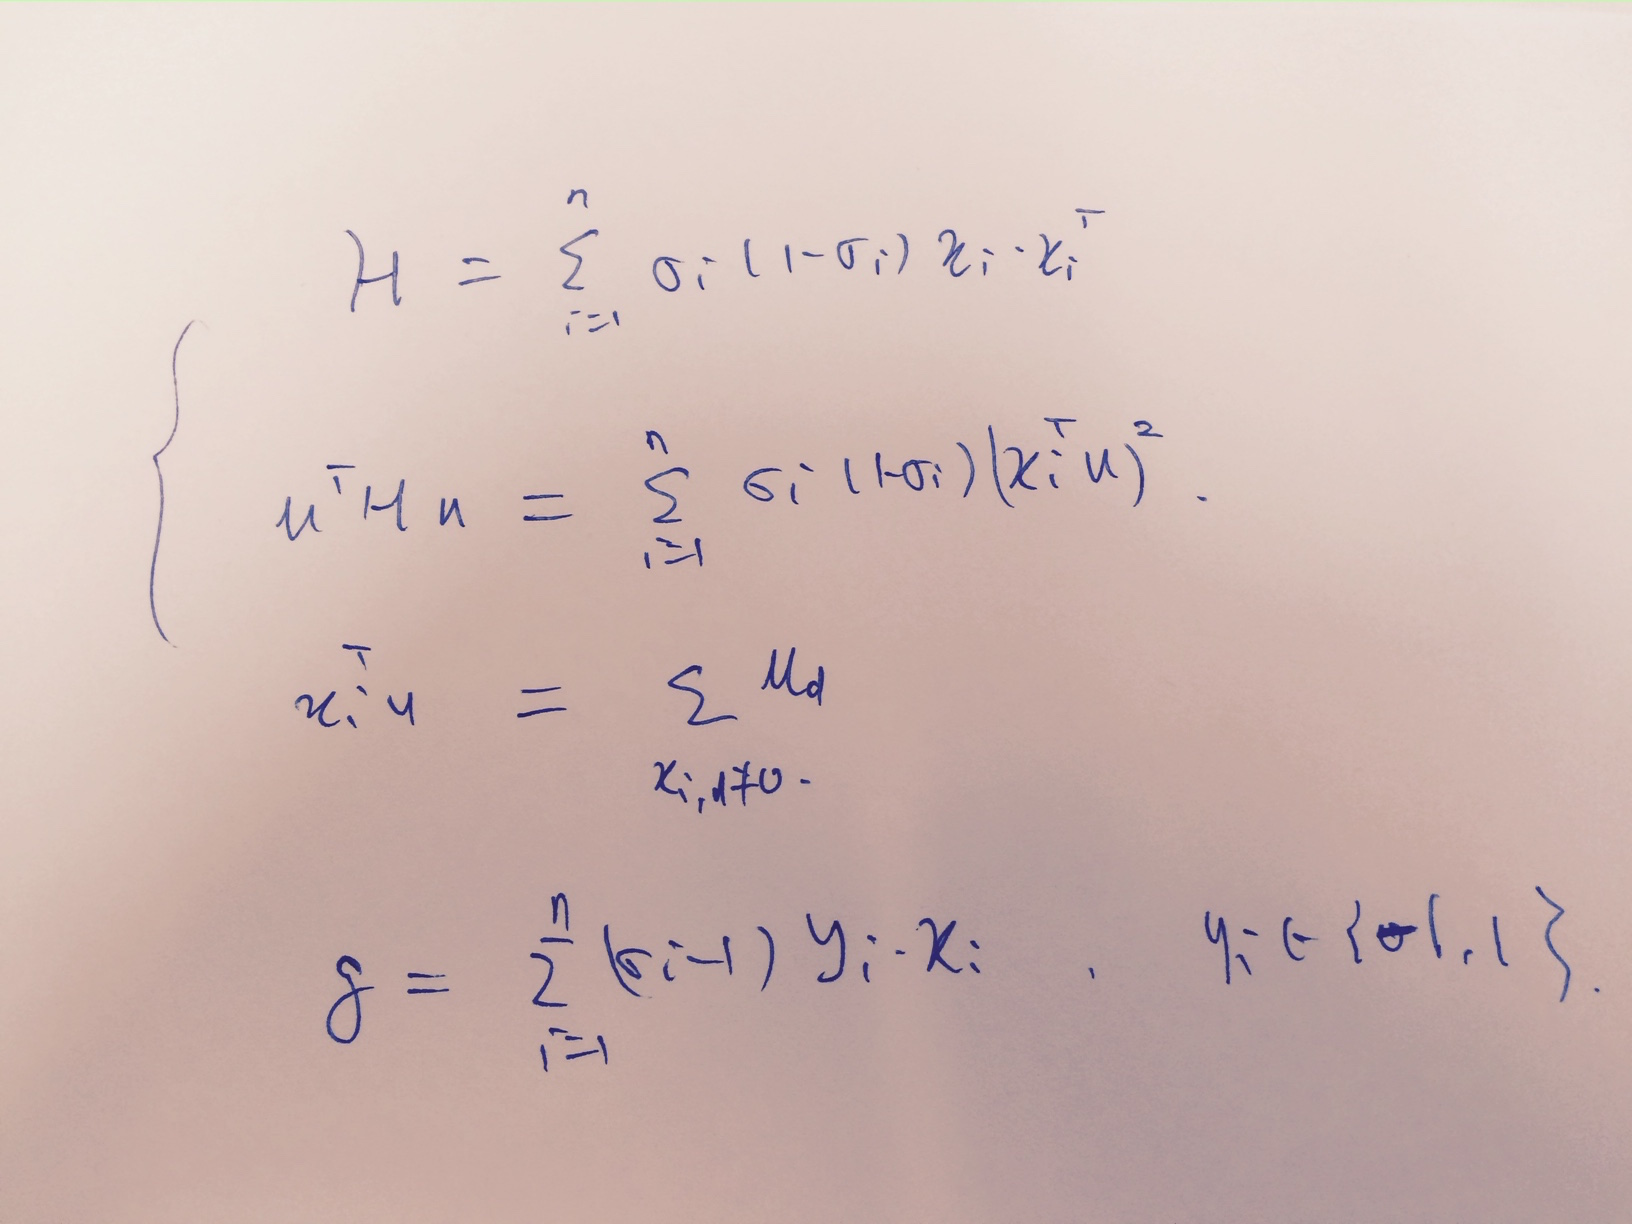 H = \sum_{i=1}^{n} σ_i (1-σ_i) x_i · x_i^T
u^T H u = \sum_{i=1}^{n} σ_i (1-σ_i) (x_i^T u)^2 .
x_i^T u = \sum_{x_{i,d} ≠ 0} u_d
g = \sum_{i=1}^{n} (σ_i - 1) y_i · x_i , y_i ∈ {-1, 1}.